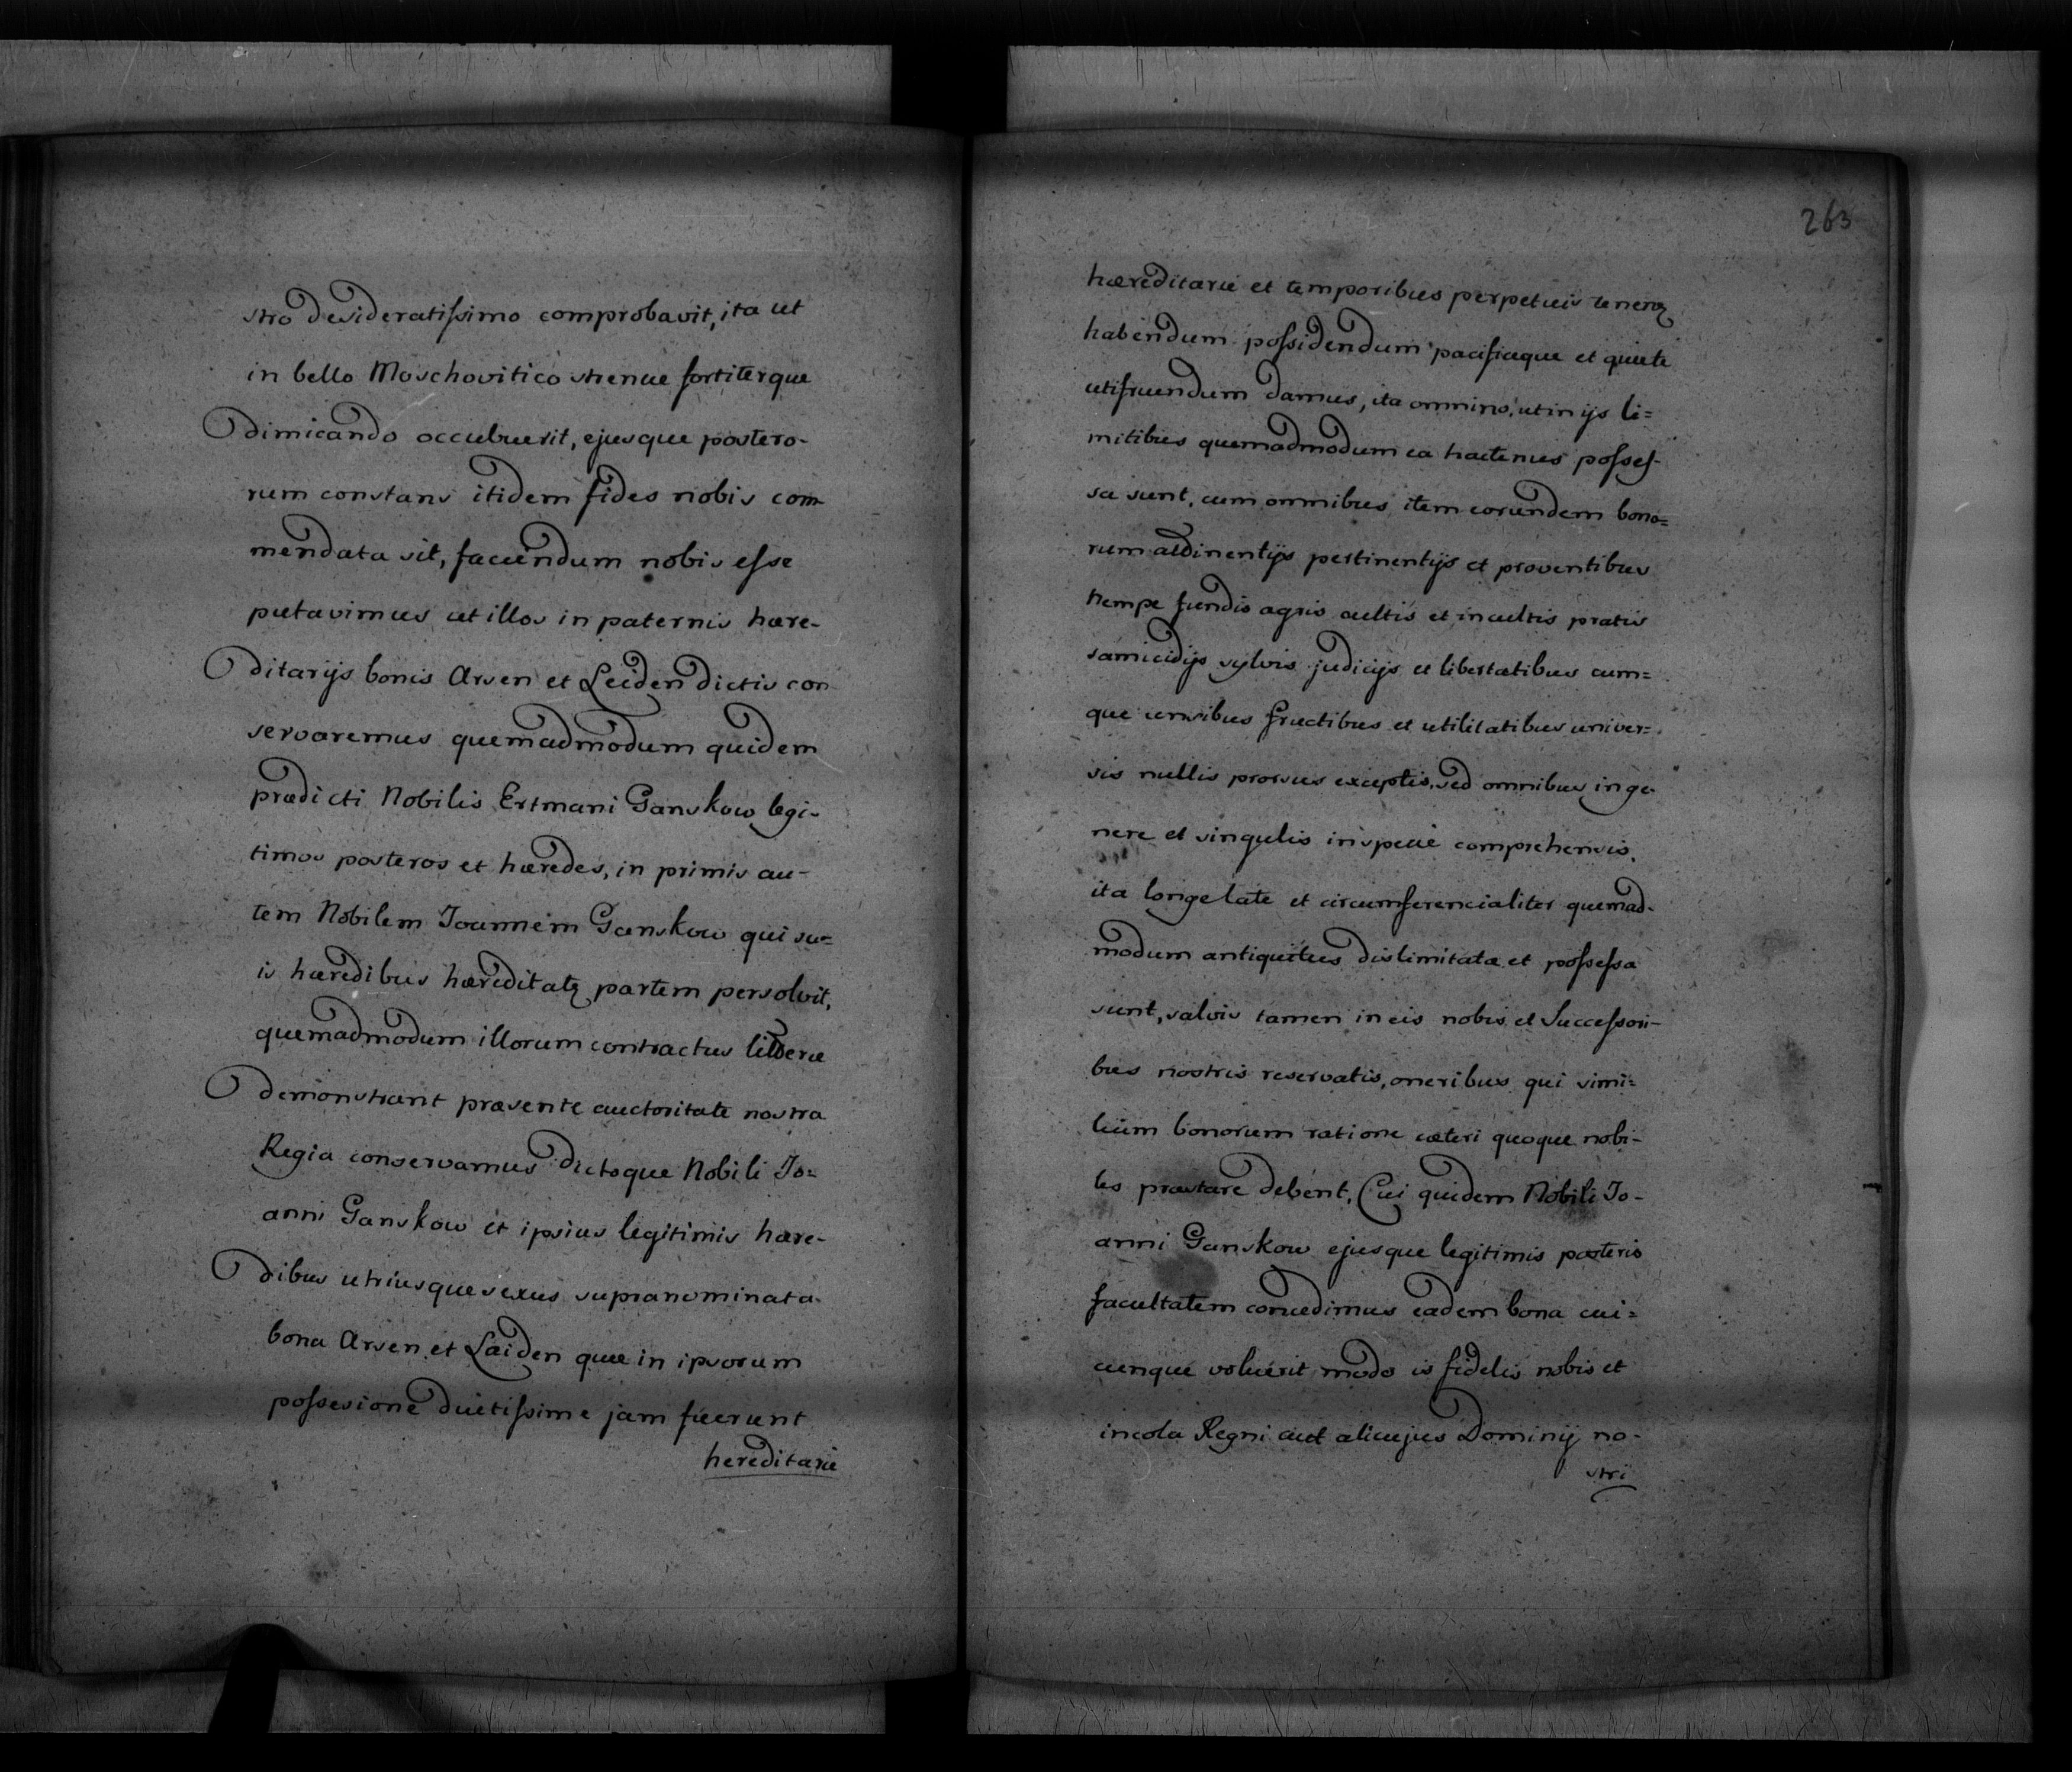 stro desideratissimo comprobavit, ita ut
in bello Moschovitico strenue fortiterque
dimicando occubuerit, ejusque postero-
rum constans itidem fides nobis com-
mendata sit, faciendum nobis esse
putavimus ut illos in paternis hære-
ditarijs bonis Arsen et Leiden dictis con
servaremus quemadmodum quidem
prædicti Nobilis Ertmani Ganskow legi-
timos posteros et hæredes, in primis au-
tem Nobilem Joannem Ganskow qui su=
is hæredibus hæreditatę partem persolvit,
quemadmodum illorum contractus litteræ
demonstrant præsente auctoritate nostra
Regia conservamus dictoque Nobili Jo=
anni Ganskow et ipsius legitimis hære-
dibus utriusque sexus supranominata
bona Arsen et Laiden quæ in ipsorum
possesione duetissime jam fuerunt
hereditarie
263
hæreditarie et temporibus perpetuis teneną
habendum possidendum pacificeque et quiete
utifruendum damus, ita omnino, ut in ijs li=
mitibus quemadmodum ea hactenus posses-
sa sunt, cum omnibus item eorundem bono=
rum attinentijs pertinentijs et proventibus
nempe fundis agris cultis et incultis pratis
samicidijs sylvis judicijs et libertatibus cum=
que censibus fructibus et utilitatibus univer=
sis nullis prorsus exceptis, sed omnibus in ge-
nere et singulis in specie comprehensis,
ita longe late et circumferencialiter quemad-
modum antiquitus dislimitata et possessa
sunt, salvis tamen in eis nobis et Successori-
bus nostris reservatis, oneribus qui simi=
lium bonorum ratione cæteri quoque nobi-
les præstare debent, Cui quidem Nobili Jo-
anni Ganskow ejusque legitimis posteris
facultatem concedimus eadem bona cui=
cunque voluerit modo is fidelis nobis et
incola Regni aut alicujus Dominij no-
stri